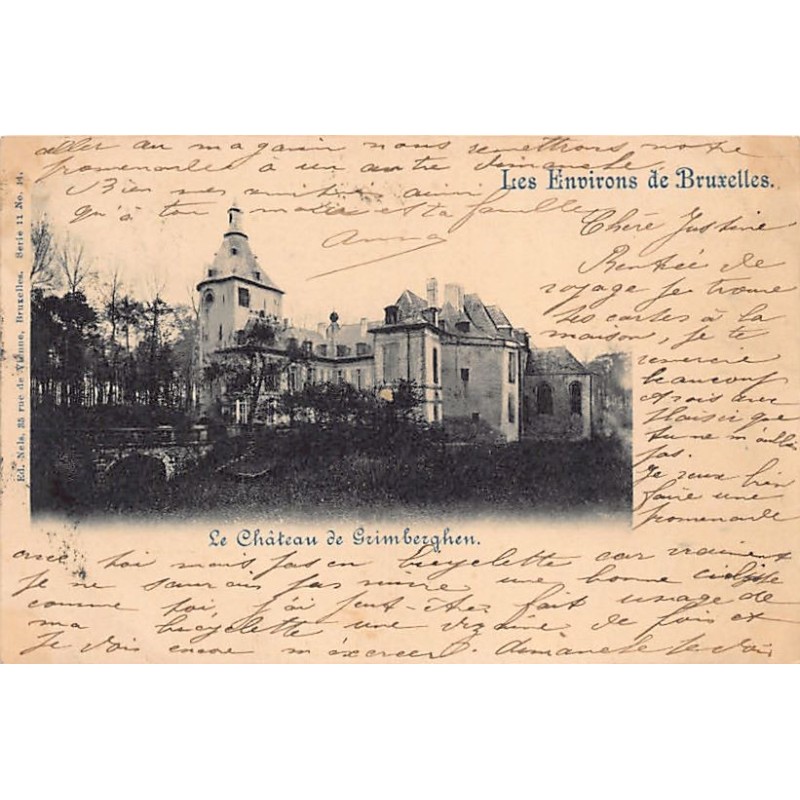 Les Environs de Bruxelles.
Chère Justine
Rentrée de
voyage je trouve
tes cartes à la
maison, je te
remercie
beaucoup
avec
plaisir que
tu ne m'oublies
pas.
Je veux bien
faire une
promenade
Le Château de Grimberghen.
avec toi mais pas en bicyclette car vraiment
je ne saurais pas suivre une bonne cycliste
comme toi, j'ai peut-être fait usage de
ma bicyclette une vigaine de fois et
je dois encore m'exercer. dimanche je dois
aller au magasin nous remettrons notre
promenade à un autre dimanche
Bien mes amitiés ainsi
qu'à ton et ta famille
Anna
Ed. Nels, 35 rue de Vienne, Bruxelles. Serie 11 No. 14.